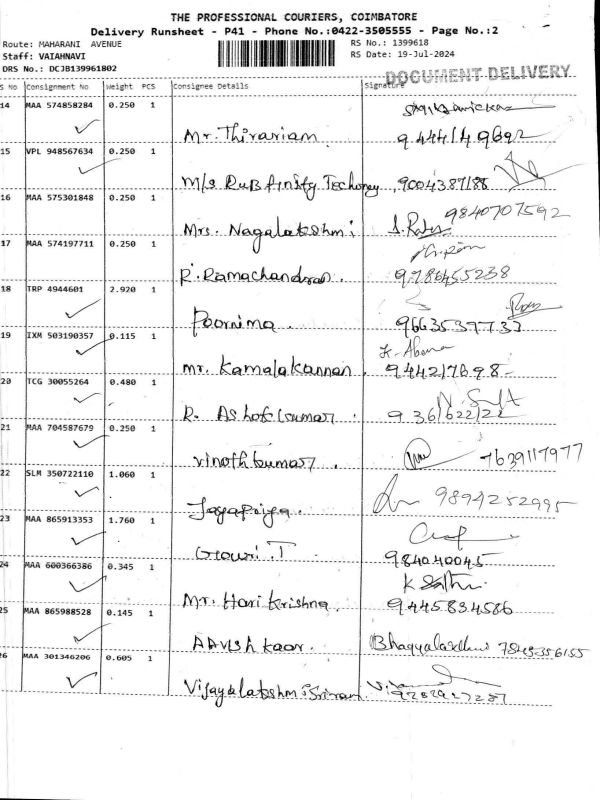 THE PROFESSIONAL COURIERS, COIMBATORE
Delivery Runsheet - P41 - Phone No.:0422-3505555 - Page No.:2
Route: MAHARANI AVENUE RS No.: 1399618
Staff: VAIAHNAVI RS Date: 19-Jul-2024
DRS No.: DCJB139961802 DOCUMENT DELIVERY
S No Consignment No Weight PCS Consignee Details Signature
14 MAA 574858284 0.250 1
Mr. Thirariam 9444149692
15 VPL 948567634 0.250 1
M/s RUB 9004387188
16 MAA 575301848 0.250 1
Mrs. Nagalakshmi 9840707592
17 MAA 574197711 0.250 1
R. Ramachandran. 9786455238
18 TRP 4944601 2.920 1
Poornima. 9663539733
19 IXM 503190357 0.115 1
Mr. Kamalakannan. 944217698
20 TCG 30055264 0.480 1
R. Ashok kumar. 9361622122
21 MAA 704587679 0.250 1
Vinothkumar. 7639117977
22 SLM 350722110 1.060 1
Jayapriya. 9894252995
23 MAA 865913353 1.760 1
Gowri.T 984040045
24 MAA 600366386 0.345 1
Mr. Harikrishna. 9445834586
25 MAA 865988528 0.145 1
AAvish kaar. Bhagyalakshmi
26 MAA 301346206 0.605 1
Vijayalakshmi Sriram